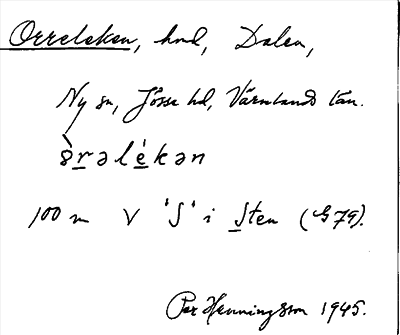 Orreleken, hmd, Dalen,
Ny sn, Jösse hd, Värmlands län.
òrəlékən
100 m V 'S' i Sten (G 79).
Per Henningsson 1945.